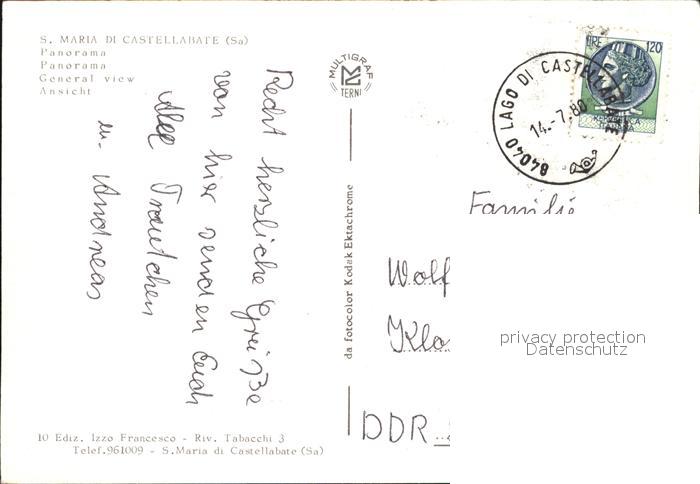 S. MARIA DI CASTELLABATE (Sa)
Panorama
Panorama
General view
Ansicht
MULTIGRAF
TERNI
LIRE 120
REPUBBLICA
ITALIANA
84040 LAGO DI CASTELLABATE
14.-7.80
Recht herzliche Grüße
von hier senden Euch
u. Andreas
da fotocolor Kodak Ektachrome
Familie
Wolf
Klo
DDR
privacy protection
Datenschutz
10 Ediz. Izzo Francesco - Riv. Tabacchi 3
Telef.961009 - S.Maria di Castellabate (Sa)